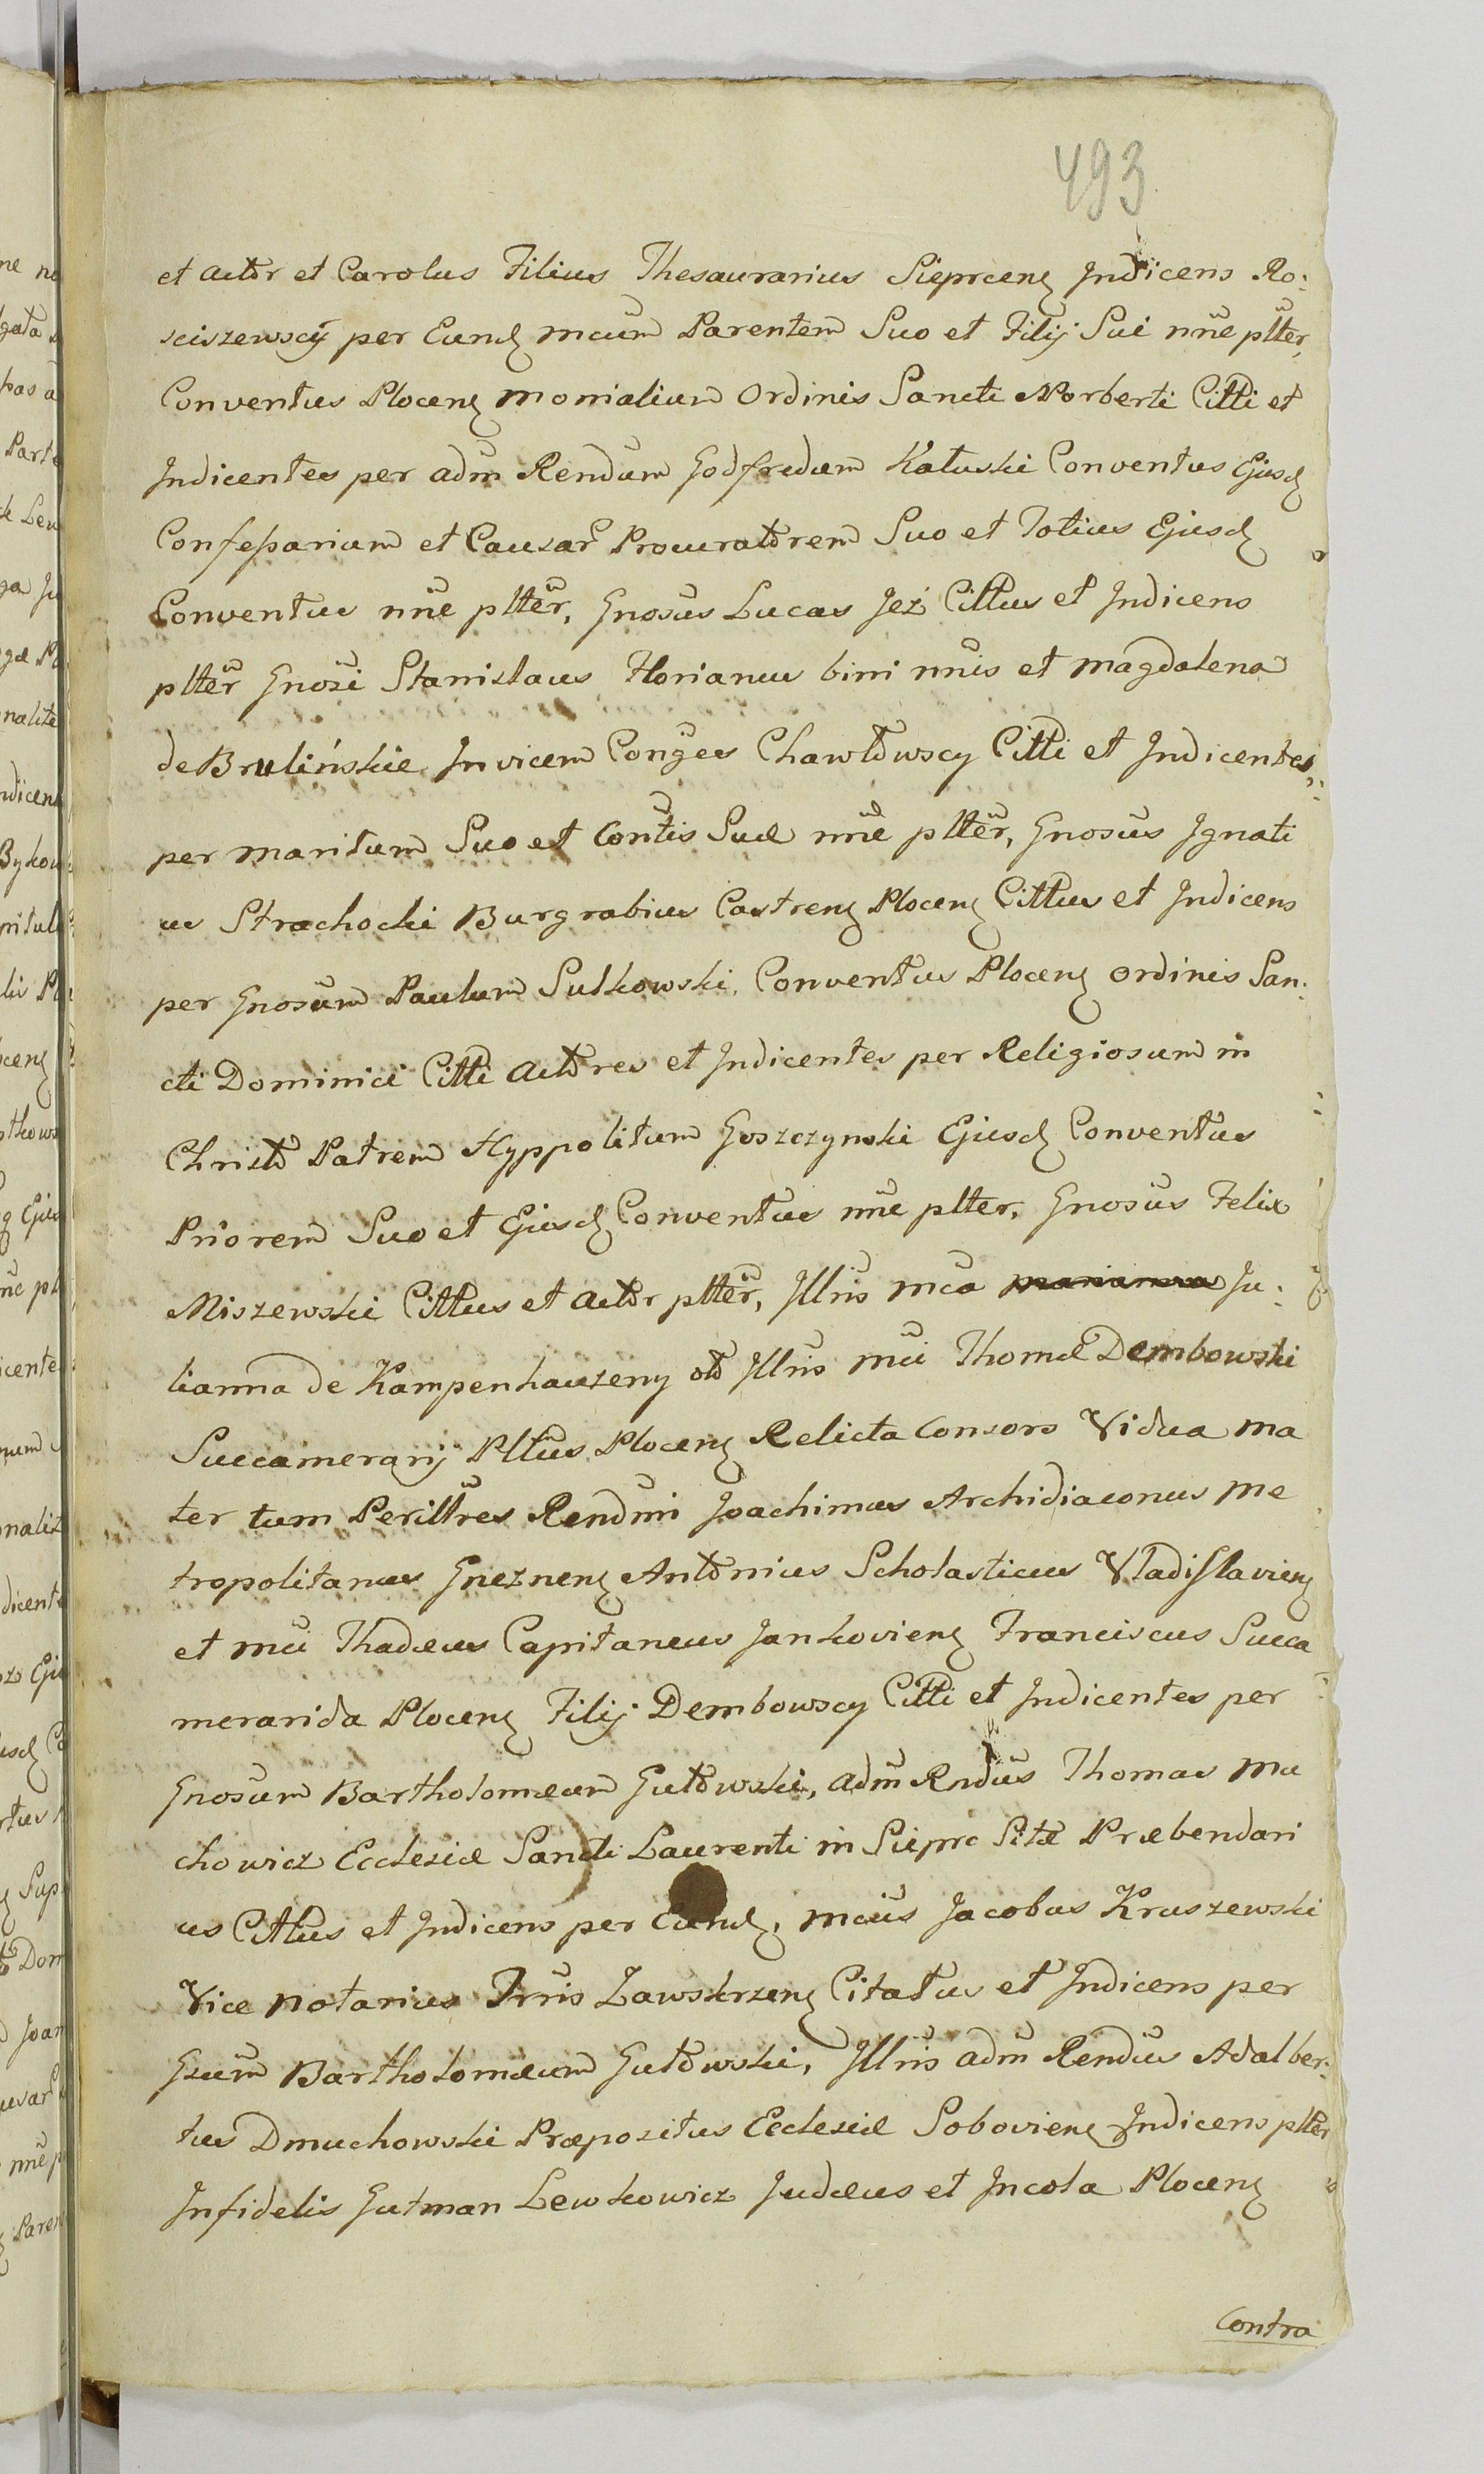 493
et actor et Carolus Filius Thesaurarius Sieprcen Indicens Ro:
sciszewscÿ per Eund mcum Parentem Suo et Filÿ Sui nñe pltter,
Conventus Plocen Monialium Ordinis Sancti Norberti Citti et
Indicentes per adm Rendum Godfredum Katuski Conventus Ejusd
Confessarium et Causar Procuratorem Suo et Totius Ejusd
Conventus nñe pltter, Gnosus Lucas Jeż Cittus et Indicens
pltter Gnosi Stanislaus Florianus bini nñis et Magdalena
de Brulińskie Invicem Conges Chawłowscy Citti et Indicentes,
per maritum Suo et Contis Suæ nñe pltter, Gnosus Ignati
us Strachocki Burgrabius Castren Plocen Cittus et Indicens
per Gnosum Paulum Sulkowski, Conventus Plocen Ordinis San:
cti Dominici Citti actores et Indicentes per Religiosum in
Christo Patrem Hyppolitum Goszczynski Ejusd Conventus
Priorem Suo et Ejusd Conventus nñe pltter, Gnosus Felix
Miszewski Cittus et actor pltter, Illris mca Marianna Ju:
lianna de Kampenhauzeny ol Illris mci Thomæ Dembowski
Succamerarÿ Pltus Plocen Relicta Consors Vidua ma
ter tum Perilltres Rendmi Joachimus Archidiaconus me
tropolitanus Gneznen Antonius Scholasticus Vladislavien
et mci Thadæus Capitaneus Jankovien Franciscus Succa
merarida Plocen Filÿ Dembowscy Citti et Indicentes per
Gnosum Bartholomæum Gutowski, adm Rndus Thomas Ma
chowicz Ecclesiæ Sancti Laurenti in Sieprc Sitæ Præbendari
us Cittus et Indicens per Eund, mcus Jacobus Kruszewski
Vice notarius Trris Zawskrzen Citatus et Indicens per
Gsum Bartholomæum Gutowski, Illris adm Rendus Adalber:
tus Dmuchowski Præpositus Ecclesiæ Sobovien Indicens pltter
Infidelis Gutman Lewkowicz Judæus et Incola Plocen
Contra